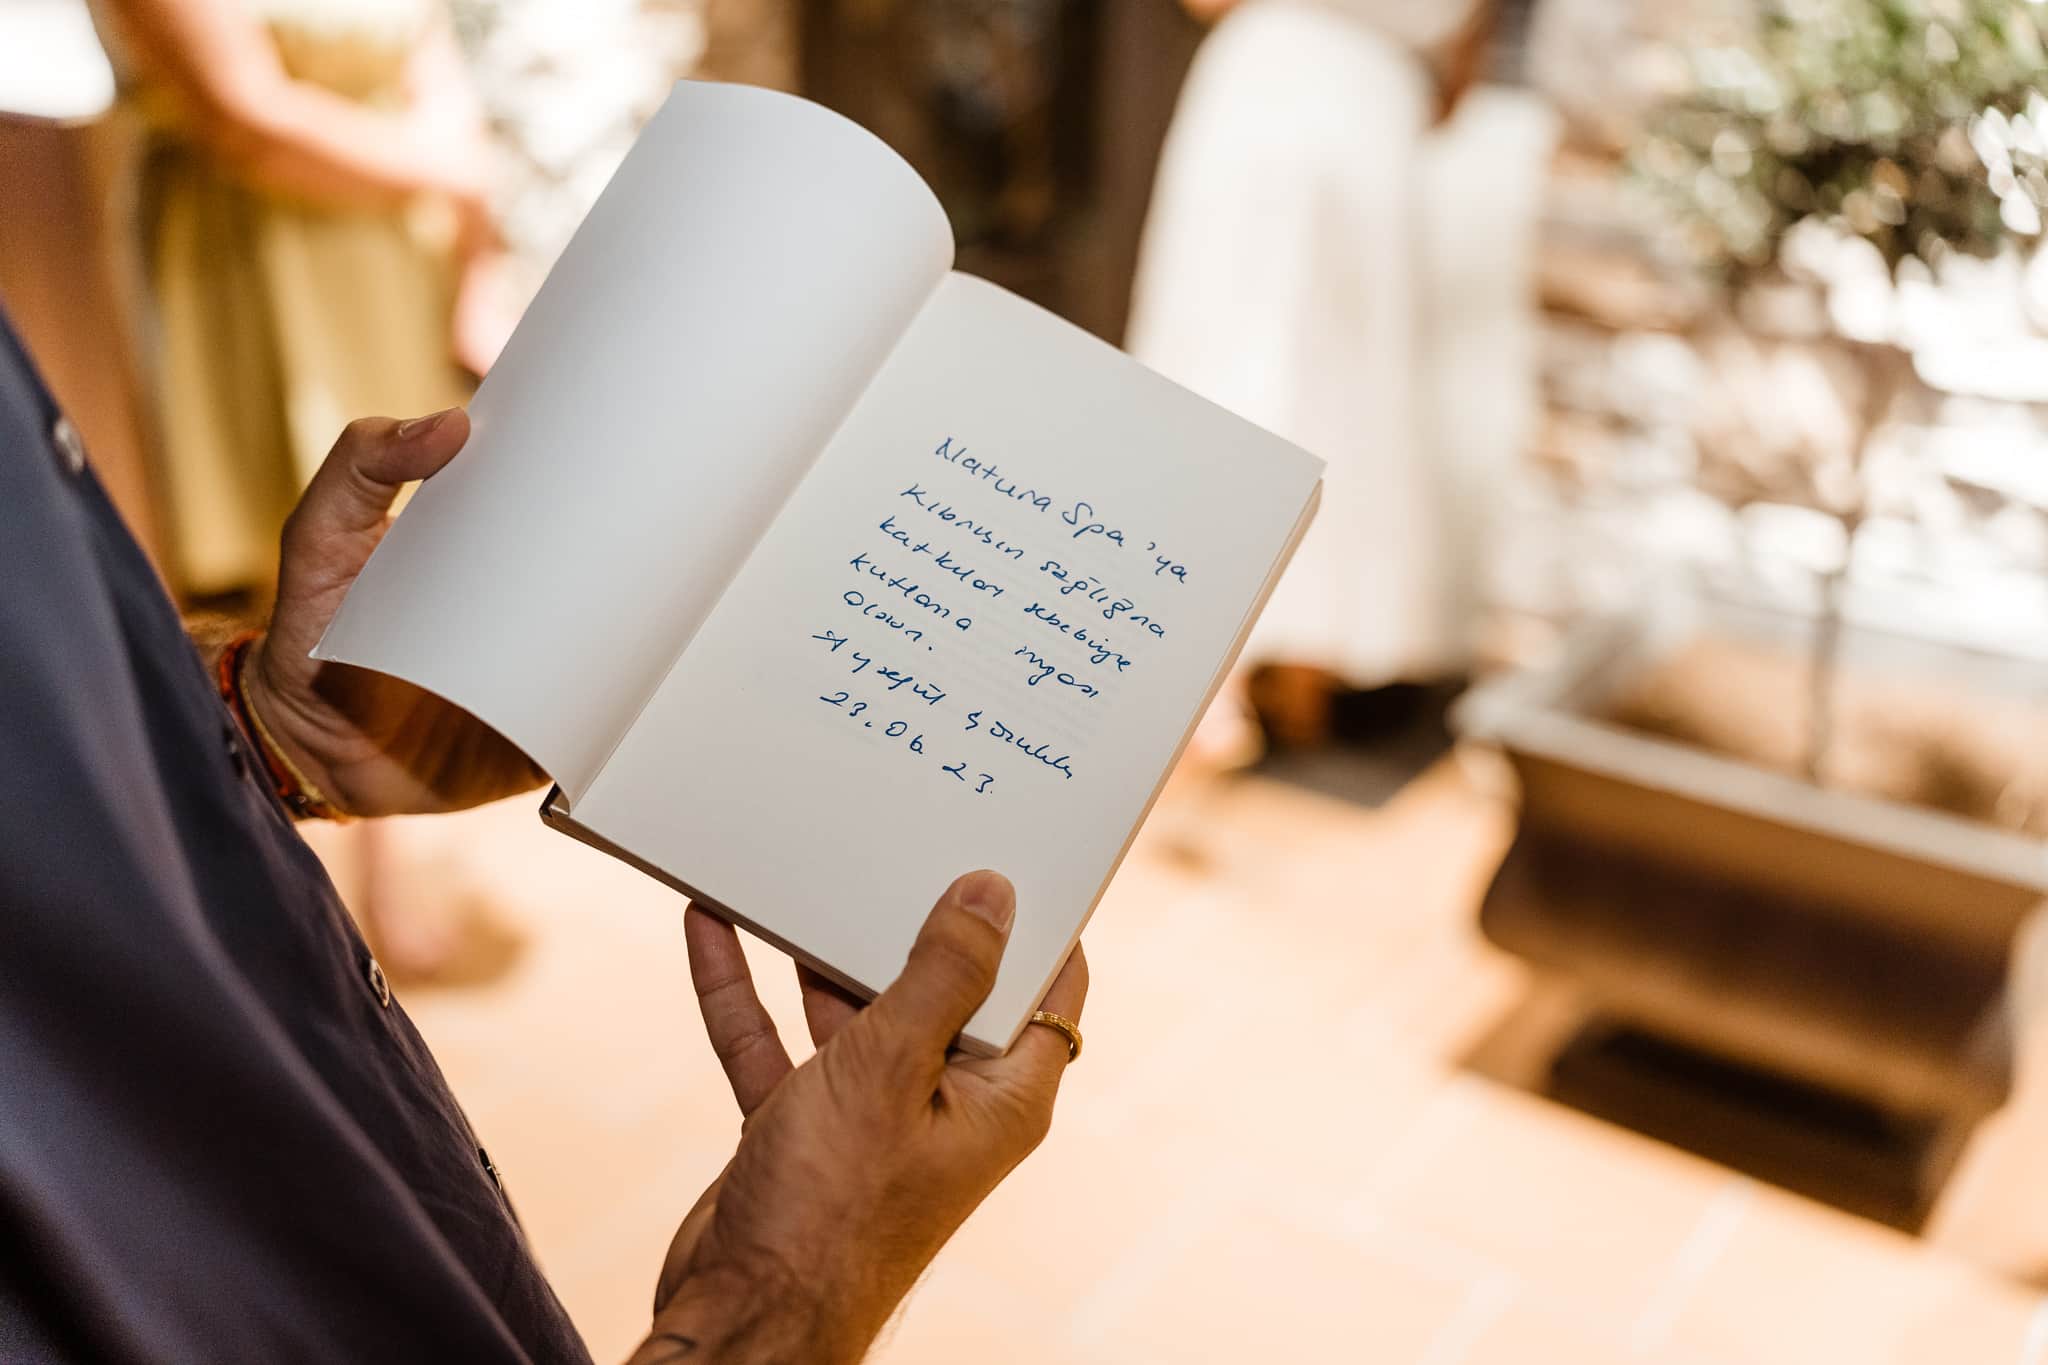 Natura Spa'ya
Kıbrısın sağlığına
katkıları sebebiyle
kutlama imzası
olsun.
Ayşegül
23.06.23.